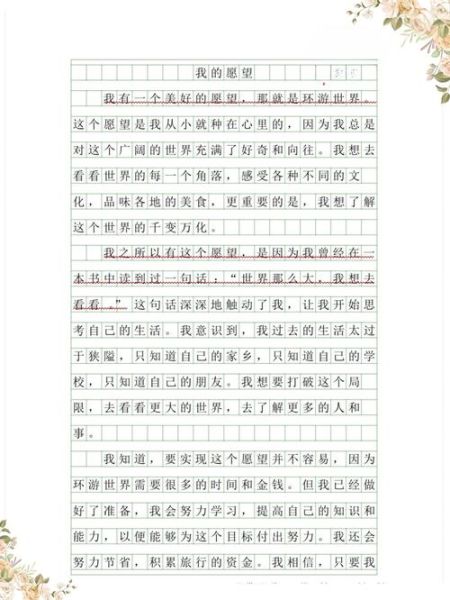 我的愿望
我有一个美好的愿望，那就是环游世界。
这个愿望是我从小就种在心里的，因为我总是
对这个广阔的世界充满了好奇和向往。我想去
看看世界的每一个角落，感受各种不同的文
化，品味各地的美食。更重要的是，我想了解
这个世界的千变万化。
我之所以有这个愿望，是因为我曾经在一
本书中读到过一句话：“世界那么大，我想去
看看。”这句话深深地触动了我，让我开始思
考自己的生活。我意识到，我过去的生活太过
于狭隘，只知道自己的家乡，只知道自己的学
校，只知道自己的朋友。我想要打破这个局
限，去看看更大的世界，去了解更多的人和
事。
我知道，要实现这个愿望并不容易，因为
环游世界需要很多的时间和金钱。但我已经做
好了准备，我会努力学习，提高自己的知识和
能力，以便能够为这个目标付出努力。我还会
努力节省，积累旅行的资金。我相信，只要我